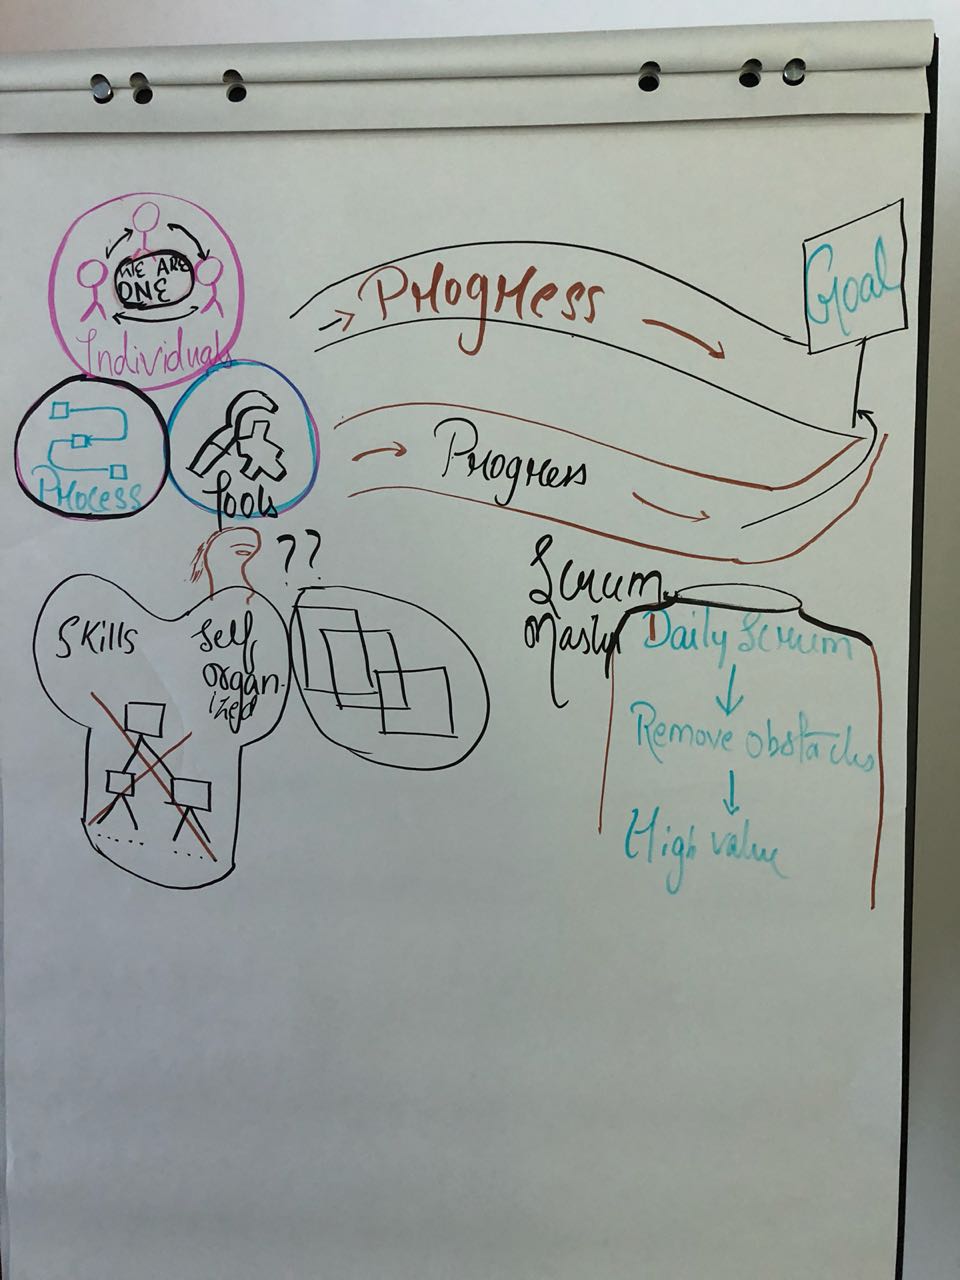 WE ARE
ONE
Individuals
Progress
Goal
Process
Tools
Progress
??
Skills
Self
organ-
ized
Scrum
Master
Daily Scrum
Remove obstacles
High value